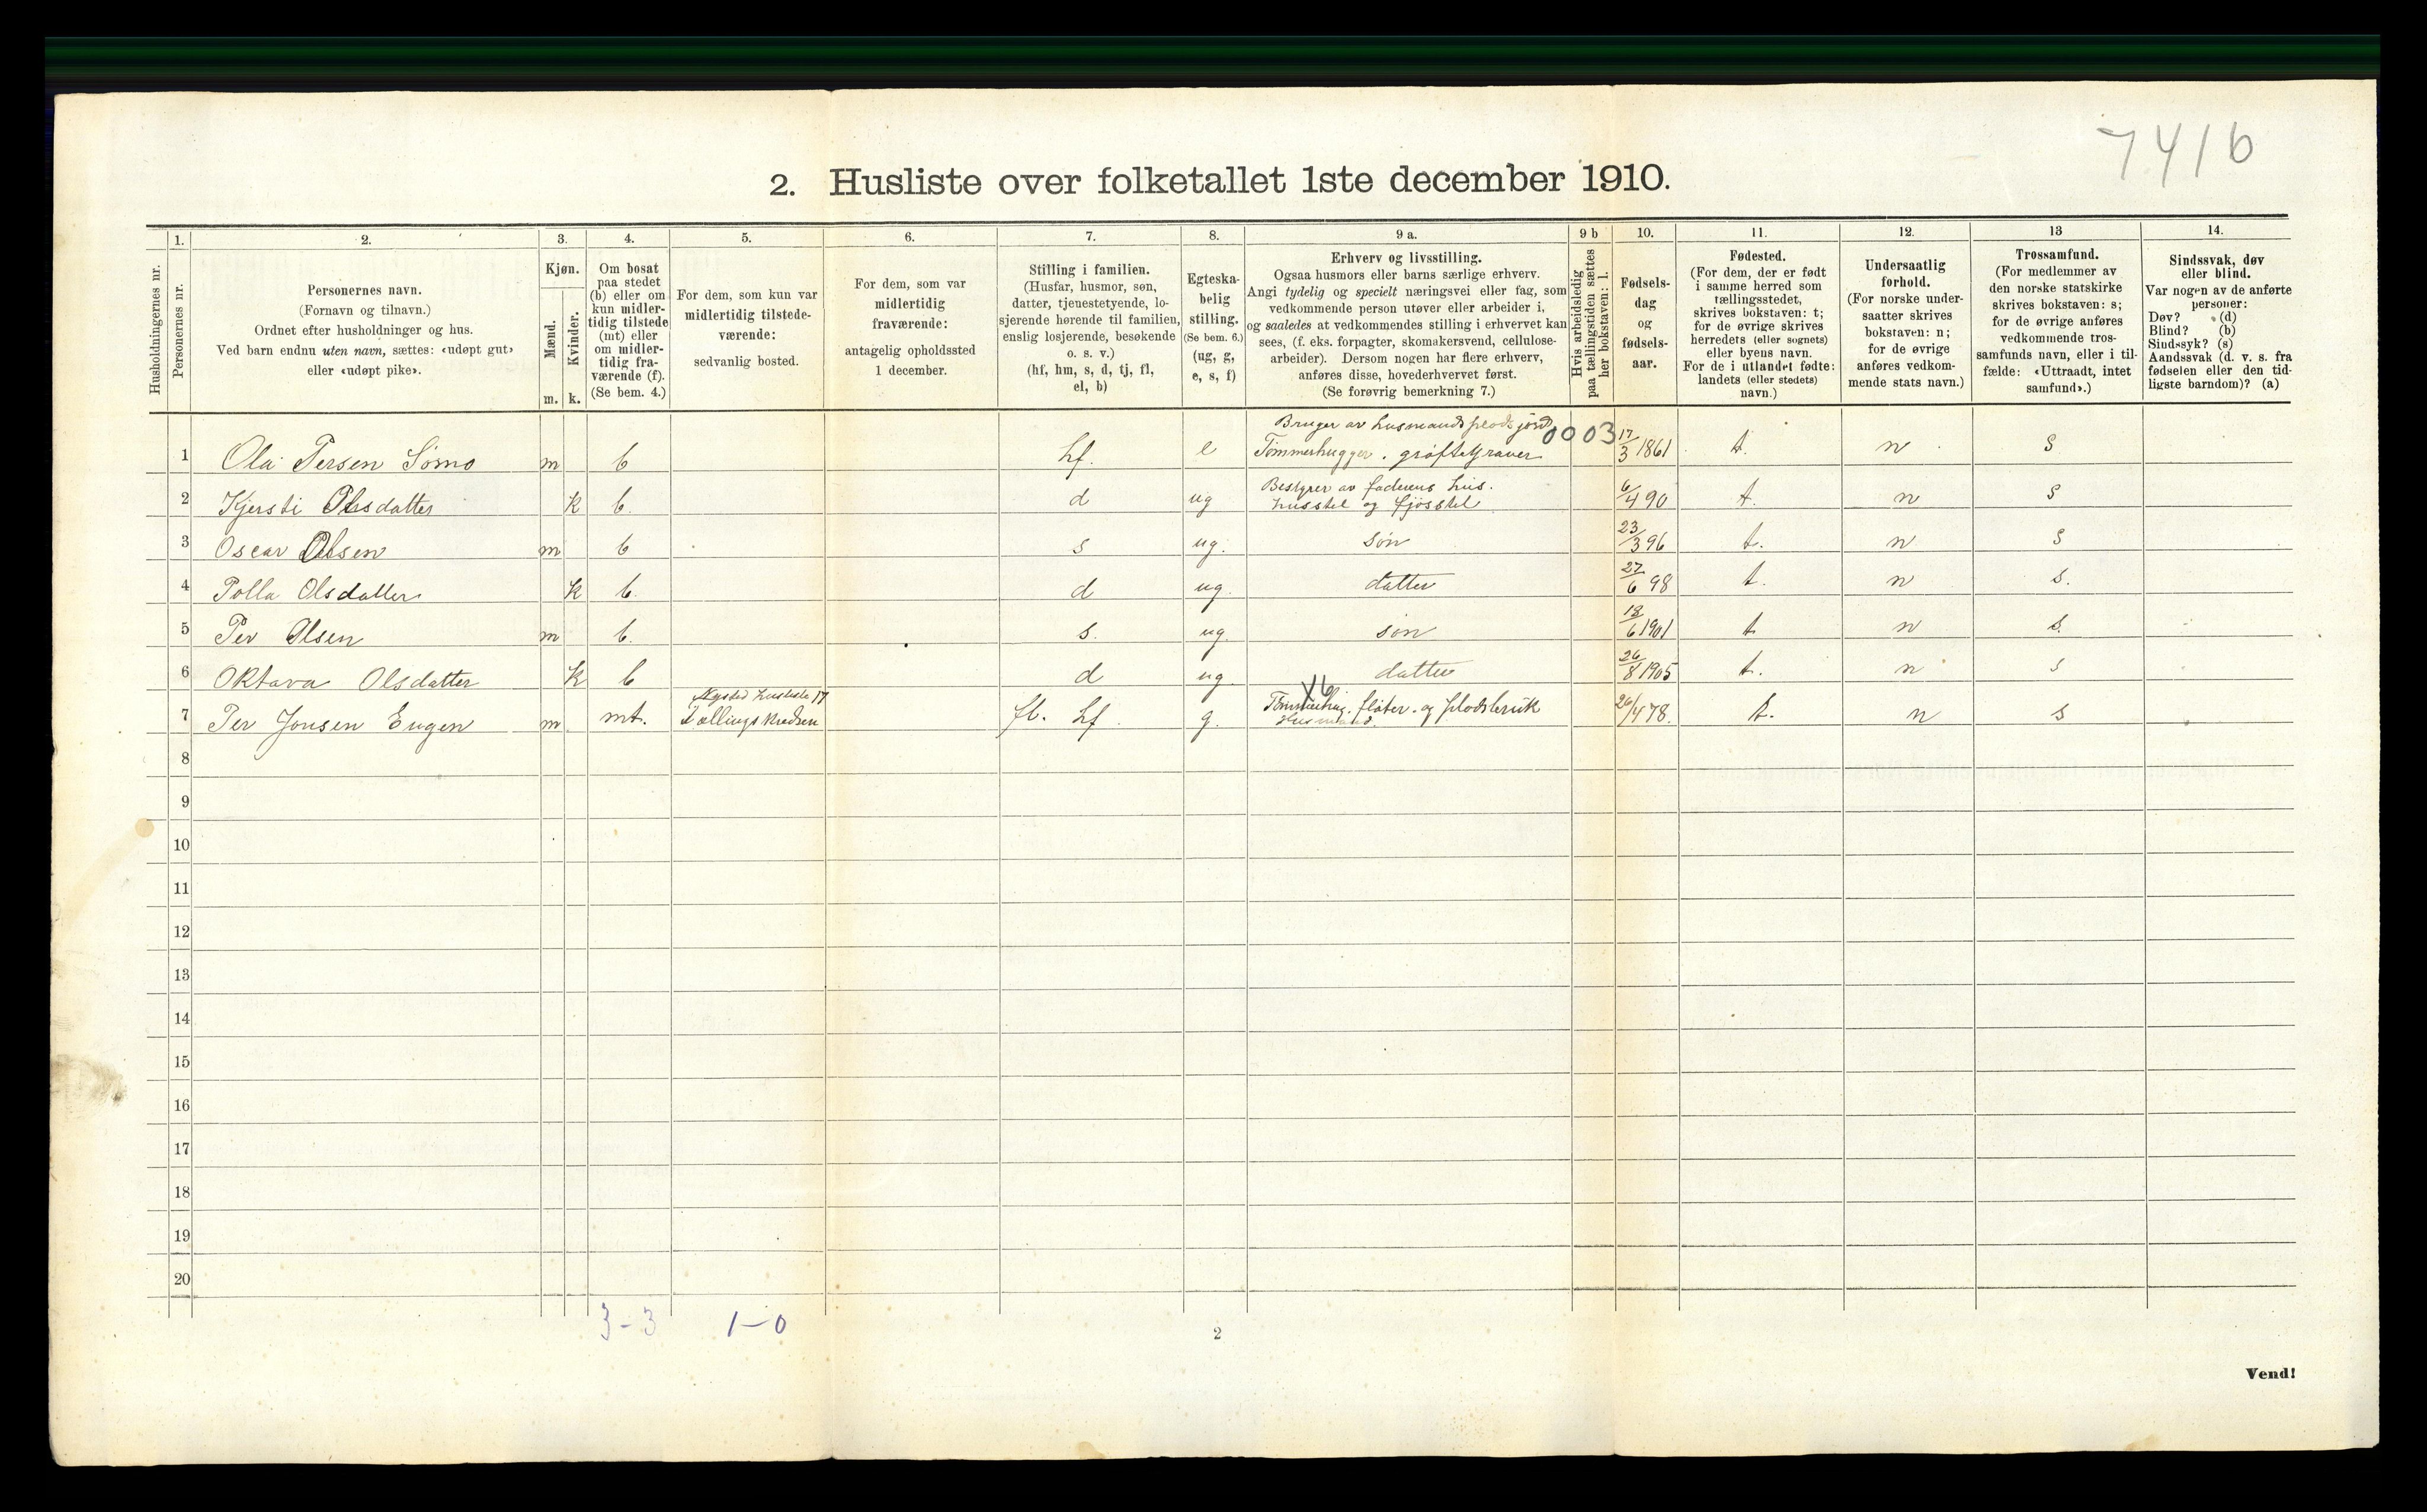 7416
2. Husliste over folketallet 1ste december 1910.
1. 2. 3. 4. 5. 6. 7. 8. 9 a. 9 b 10. 11. 12. 13 14.
Husholdningernes nr.
Personernes nr.
Personernes navn.
(Fornavn og tilnavn.)
Ordnet efter husholdninger og hus.
Ved barn endnu uten navn, sættes: «udøpt gut»
eller «udøpt pike».
Kjøn.
Mænd.
Kvinder.
m. k.
Om bosat
paa stedet
(b) eller om
kun midler-
tidig tilstede
(mt) eller
om midler-
tidig fra-
værende (f).
(Se bem. 4.)
For dem, som kun var
midlertidig tilstede-
værende:
sedvanlig bosted.
For dem, som var
midlertidig
fraværende:
antagelig opholdssted
1 december.
Stilling i familien.
(Husfar, husmor, søn,
datter, tjenestetyende, lo-
sjerende hørende til familien,
enslig losjerende, besøkende
o. s. v.)
(hf, hm, s, d, tj, fl,
el, b)
Egteska-
belig
stilling.
(Se bem. 6.)
(ug, g,
e, s, f)
Erhverv og livsstilling.
Ogsaa husmors eller barns særlige erhverv.
Angi tydelig og specielt næringsvei eller fag, som
vedkommende person utøver eller arbeider i,
og saaledes at vedkommendes stilling i erhvervet kan
sees, (f. eks. forpagter, skomakersvend, cellulose-
arbeider). Dersom nogen har flere erhverv,
anføres disse, hovederhvervet først.
(Se forøvrig bemerkning 7.)
Hvis arbeidsledig
paa tællingstiden sættes
her bokstaven: l.
Fødsels-
dag
og
fødsels-
aar.
Fødested.
(For dem, der er født
i samme herred som
tællingsstedet,
skrives bokstaven: t;
for de øvrige skrives
herredets (eller sognets)
eller byens navn.
For de i utlandet fødte:
landets (eller stedets)
navn.)
Undersaatlig
forhold.
(For norske under-
saatter skrives
bokstaven: n;
for de øvrige
anføres vedkom-
mende stats navn.)
Trossamfund.
(For medlemmer av
den norske statskirke
skrives bokstaven: s;
for de øvrige anføres
vedkommende tros-
samfunds navn, eller i til-
fælde: «Uttraadt, intet
samfund».)
Sindssvak, døv
eller blind.
Var nogen av de anførte
personer:
Døv? (d)
Blind? (b)
Sindssyk? (s)
Aandssvak (d. v. s. fra
fødselen eller den tid-
ligste barndom)? (a)
Bruger av husmandsplads jord 0003
1 Ola Persen Sømo m b hf. e Tømmerhugger. grøftegraver 17/3 1861 t. n s
Bestyrer av faderens hus.
2 Kjersti Olsdatter k b. d ug husstel og fjøsstel 6/4 90 t. n s
3 Oscar Olsen m b s ug. søn 23/3 96 t. n s
4 Polla Olsdatter k b. d ug. datter 27/6 98 t. n s.
5 Per Olsen m b. s. ug. søn 18/6 1901 t n s.
6 Oktava Olsdatter k b d ug. datter 26/8 1905 t. n s
Nysted husliste 17 X6
7 Per Jonsen Engen m mt. Tællingskredsen fl. hf. g. fløter. og pladsbruk 26/4 78. t. n s
Husmand.
8
9
10
11
12
13
14
15
16
17
18
19
20
3-3 1-0
2
Vend!